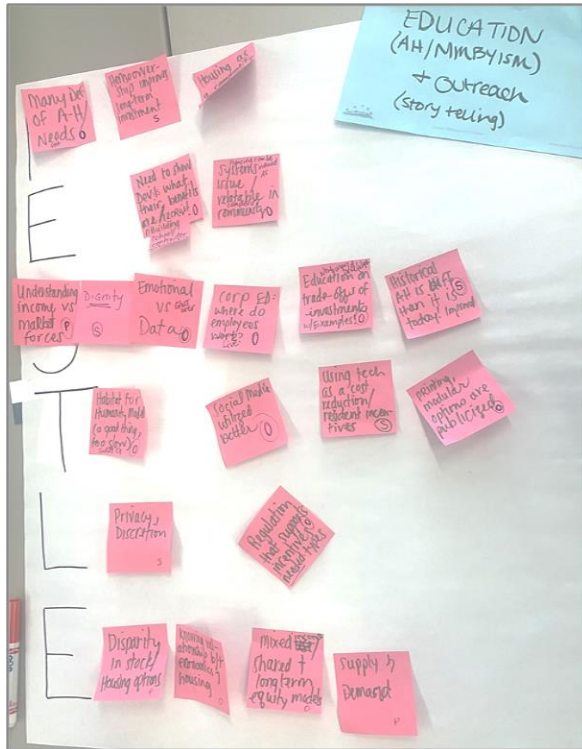 EDUCATION
(AH/NIMBYISM)
+ Outreach
(story telling)
Many Def.
of A-H/
Needs O
Homeowner-
ship improves
longterm
investment
S
Housing as
E
Need to show
Dev's what
their benefits
are/
rebuilding
systems
issue/
relatable in
community O
Understanding
income vs
market
forces P
Dignity
S
Emotional
vs
Data O
Corp Ed:
where do
employees
work?
O
Education on
trade-offs of
investments
w/Examples!
O
Historical
AH is diff.
than it is
today! S
T
Habitat for
Human. Model
(a good thing,
too slow)
O
Social media
utilized
better O
Using tech
as a cost
reduction/
resident incen-
tives S
printing,
modular
options are
publicized O
L
Privacy,
Discretion
S
Regulation
that supports
incentives
needed types
E
Disparity
in stock/
Housing options
economics &
housing
O
Mixed
shared +
longterm
equity models
O
Supply &
Demand
P